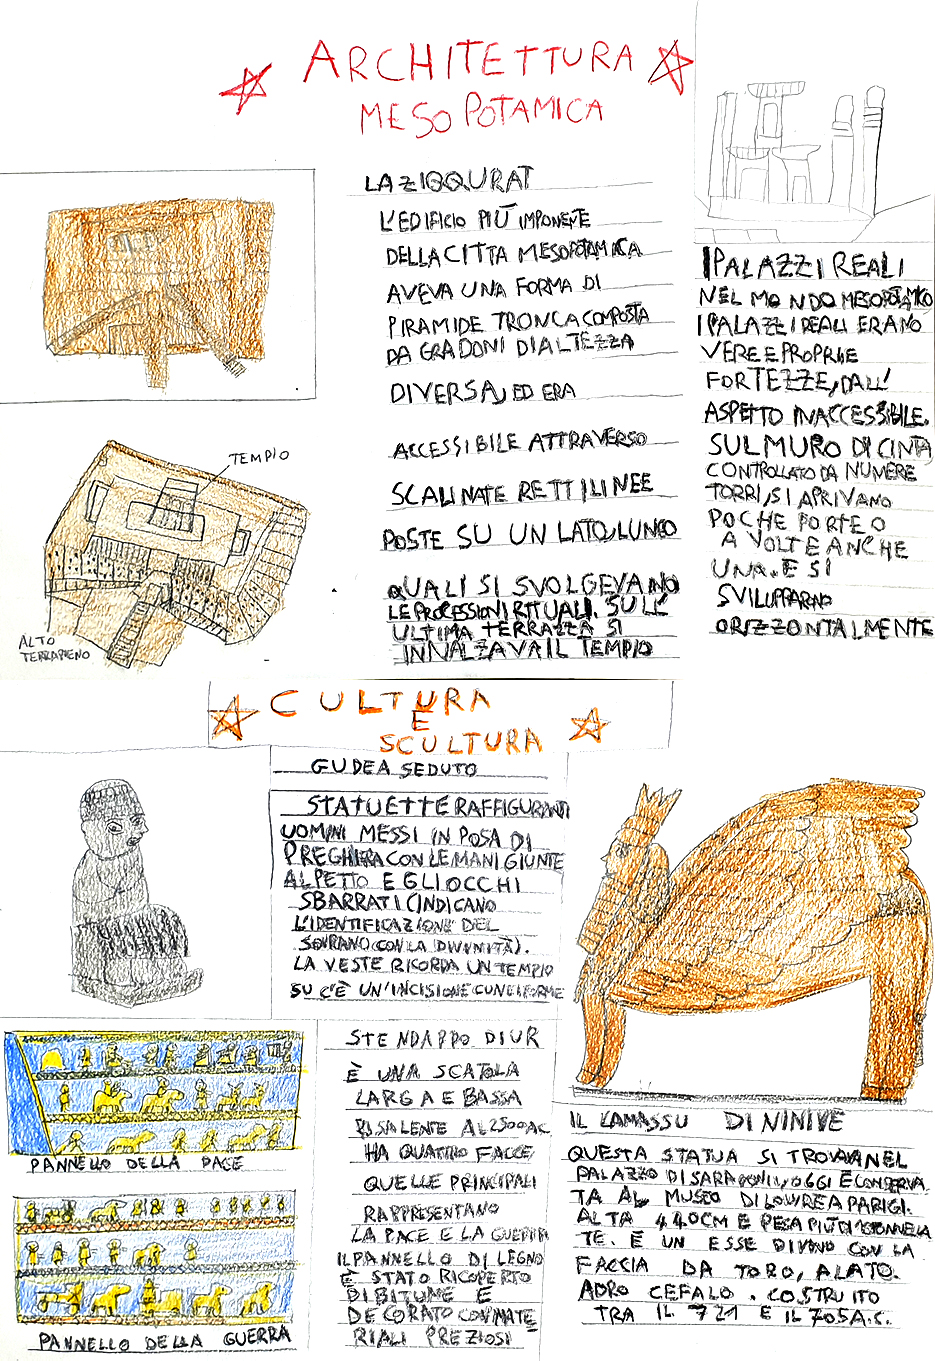 ARCHITETTURA
MESOPOTAMICA
LA ZIQQURAT
L'EDIFICIO PIÙ IMPONENTE
DELLA CITTA MESOPOTAMICA
AVEVA UNA FORMA DI
PIRAMIDE TRONCA COMPOSTA
DA GRADONI DI ALTEZZA
DIVERSA, ED ERA
ACCESSIBILE ATTRAVERSO
SCALINATE RETTILINEE
POSTE SU UN LATO, LUNGO
QUALI SI SVOLGEVANO
LE PROCESSIONI RITUALI. SULL'
ULTIMA TERRAZZA SI
INNALZAVA IL TEMPIO
TEMPIO
ALTO
TERRAPIENO
I PALAZZI REALI
NEL MONDO MESOPOTAMICO
I PALAZZI REALI ERANO
VERE E PROPRIE
FORTEZZE, DALL'
ASPETTO INACCESSIBILE.
SUL MURO DI CINTA
CONTROLLATO DA NUMERE
TORRI, SI APRIVANO
POCHE PORTE O
A VOLTE ANCHE
UNA. E SI
SVILUPPARNO
ORIZZONTALMENTE
CULTURA
E
SCULTURA
GUDEA SEDUTO
STATUETTE RAFFIGURANTI
UOMINI MESSI IN POSA DI
PREGHIERA CON LE MANI GIUNTE
AL PETTO E GLI OCCHI
SBARRATI (INDICANO
L'IDENTIFICAZIONE DEL
SOVRANO CON LA DIVINITÀ).
LA VESTE RICORDA UN TEMPIO
SU C'È UN'INCISIONE CUNEIFORME
STENDARDO DI UR
È UNA SCATOLA
LARGA E BASSA
RISALENTE AL 2500 A.C
HA QUATTRO FACCE
QUELLE PRINCIPALI
RAPPRESENTANO
LA PACE E LA GUERRA
IL PANNELLO DI LEGNO
È STATO RICOPERTO
DI BITUME E
DECORATO CON MATE
RIALI PREZIOSI
PANNELLO DELLA PACE
PANNELLO DELLA GUERRA
IL LAMASSU DI NINIVE
QUESTA STATUA SI TROVAVA NEL
PALAZZO DI SARAGON II, OGGI È CONSERVA
TA AL MUSEO DI LOUVRE A PARIGI.
ALTA 440CM E PESA PIÙ DI TONNELA
TE. È UN ESSE DIVINO CON LA
FACCIA DA TORO, ALATO.
ADRO CEFALO. COSTRUITO
TRA IL 721 E IL 705 A.C.